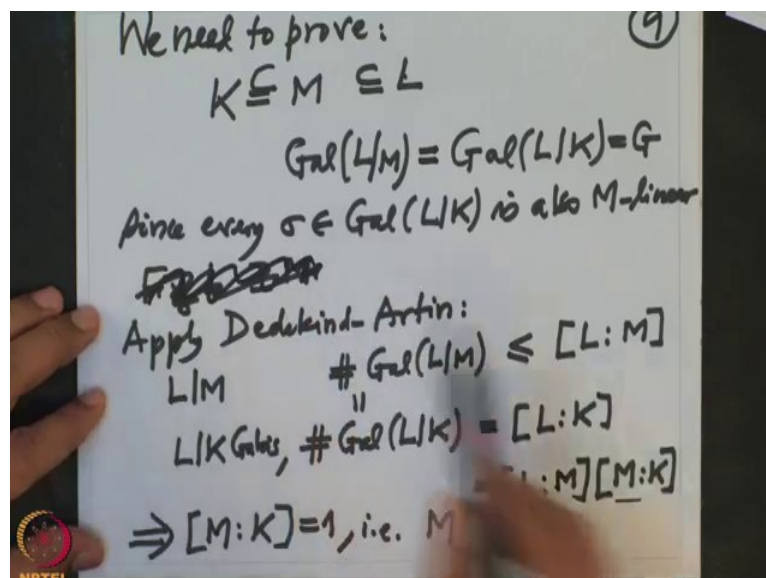 We need to prove: 9
K ⊆ M ⊆ L
Gal(L|M) = Gal(L|K) = G
Since every σ ∈ Gal(L|K) is also M-linear
Apply Dedekind-Artin:
L|M # Gal(L|M) ≤ [L:M]
||
L|K Galois, # Gal(L|K) = [L:K]
:M][M:K]
⇒ [M:K]=1, i.e. M
NPTEL